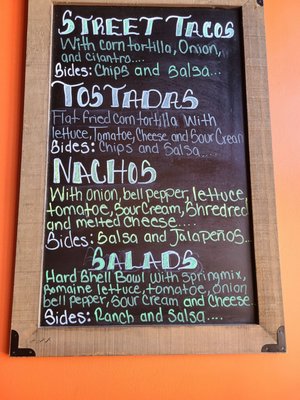 STREET TACOS
With corn tortilla, Onion,
and cilantro....
Sides: Chips and Salsa...
TOSTADAS
Flat fried corn tortilla With
lettuce, Tomatoe, Cheese and Sour Cream
Sides: Chips and Salsa....
NACHOS
With Onion, bell pepper, lettuce,
tomatoe, Sour Cream, Shredred
and melted cheese....
Sides: Salsa and Jalapeños...
SALADS
Hard Shell Bowl with Springmix,
Romaine lettuce, tomatoe, Onion
bell pepper, Sour Cream and Cheese
Sides: Ranch and Salsa....